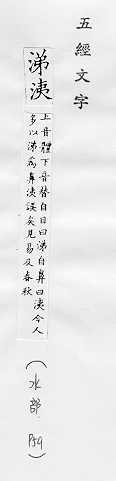 五經文字
涕洟
上音體下音替自目曰涕自鼻曰洟今人
多以涕為鼻洟誤矣見易及春秋
(水部 P59)